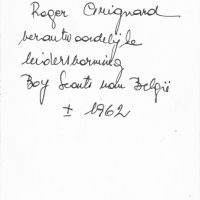 Roger Grignard
verantwoordelijke
leidersvorming
Boy Scouts van België
± 1962